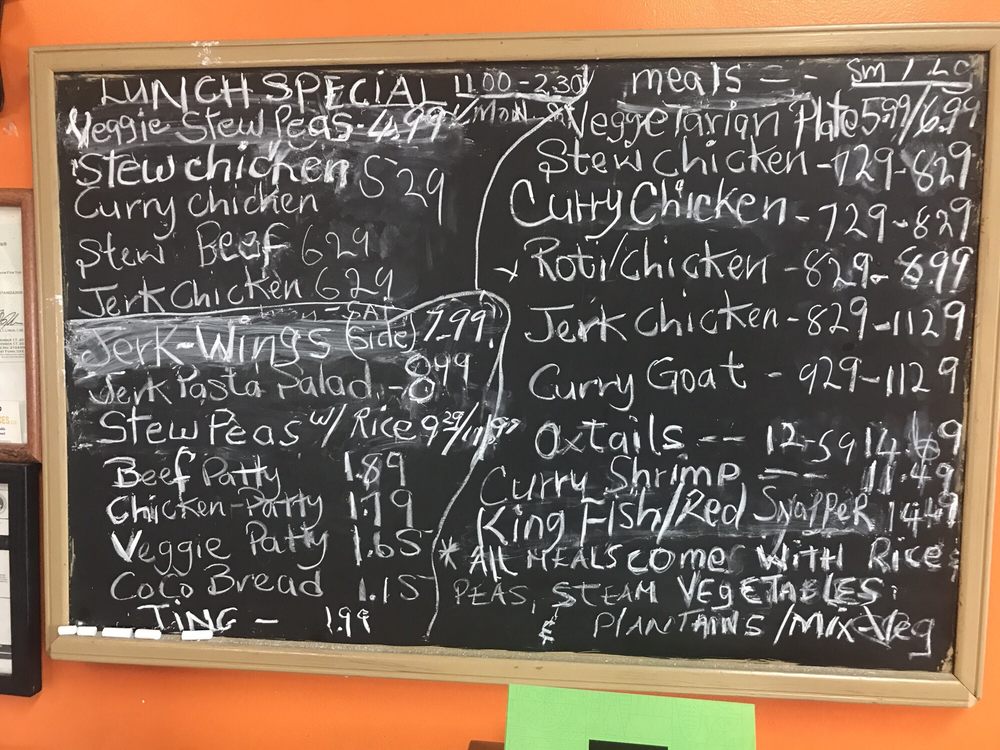 LUNCH SPECIAL 11.00-2.30
Mon
Veggie Stew Peas-4.99
Stew chicken 529
Curry chicken
Stew Beef 629
Jerk Chicken 629
Jerk-Wings (side) 7.99
Jerk Pasta Salad -899
Stew Peas w/ Rice 929/11.97
Beef Patty 1.89
Chicken-Patty 1.79
Veggie Patty 1.65
CoCo Bread 1.15
TING - 1.99
meals =- Sm / LG
VeggeTarian Plate 5.99/6.99
Stew Chicken -729-829
Curry Chicken -729-829
Roti/chicken -829-899
Jerk Chicken -829-1129
Curry Goat - 929-1129
Oxtails -- 12-59 14.
Curry Shrimp -- 11.49
King Fish/Red Snapper 1449
* All MEALS COME WITH Rice
PEAS, STEAM VEGETABLES
PLANTAINS /Mix-Veg